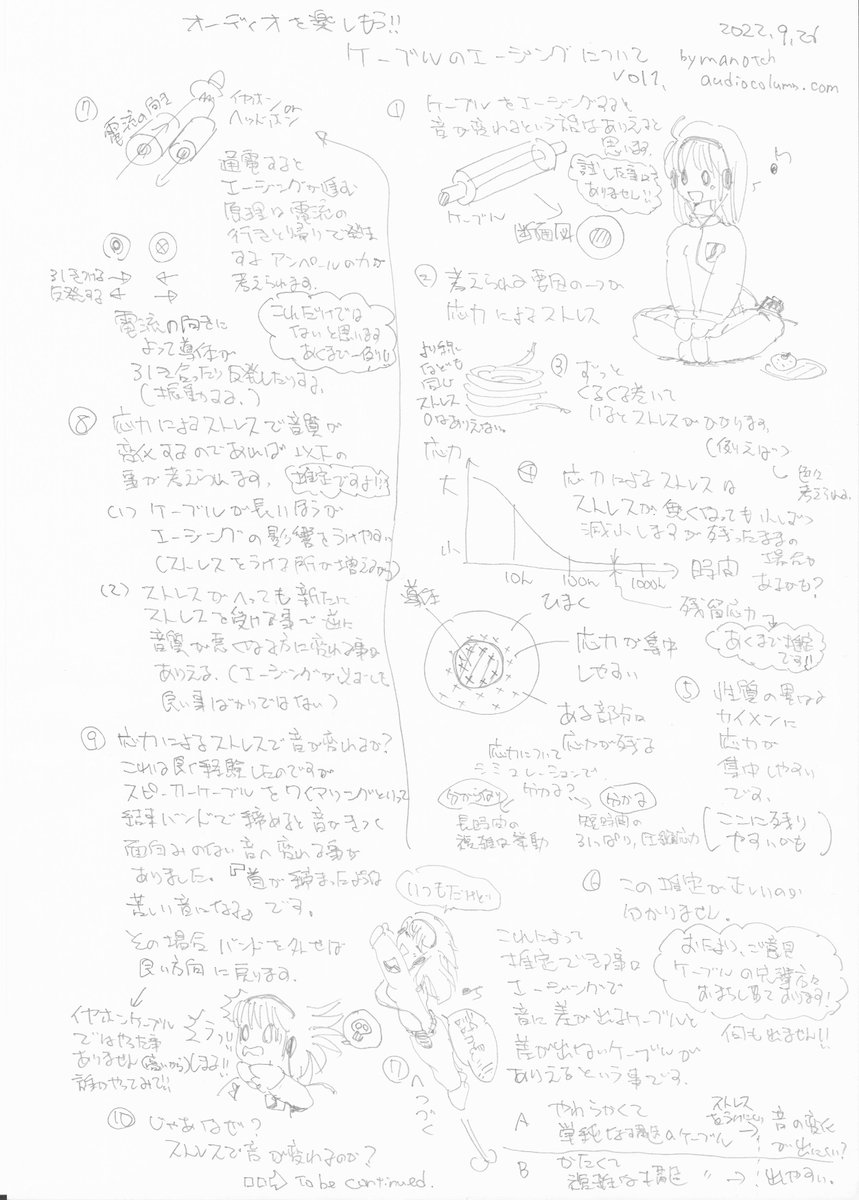 オーディオを楽しもう!!
2022.9.26
ケーブルのエージングについて
by manotch
vol1.
audiocolums.com
① ケーブルをエージングすると
音が変わるという話はありえると
思います。
試した事は
ありません!!
ケーブル
断面図
② 考えられる要因の一つが
応力によるストレス
より線
なども
同じ
ストレス
0はありえない。
③ ずっと
くるくる巻いて
いるとストレスがかかります。
(例えば)
色々
考えられる
応力
大
小
10h 100h 1000h
時間
④ 応力によるストレスは
ストレスが無くなっても
減少しますが残ったままの
場合が
あるかも?
残留応力
あくまで推定
です!!
導体
ひまく
応力が集中
しやすい
ある部分は
応力が残る
⑤ 性質の異なる
カイメンに
応力が
集中しやすい
です。
(ここに残り
やすいかも)
応力について
シミュレーションで
分かる?
分からない
長時間の
複雑な挙動
分かる
短時間の
引っぱり,圧縮応力
⑥ この推定が正しいのか
分かりません。
ご意見
ケーブルの
お待ちし
何も出ません!!
これによって
推定できる事は
エージングで
音に差が出るケーブルと
差が出ないケーブルが
ありえるという事です。
A やわらかくて
単純な構造のケーブル
ストレス
をうけにくい
→ 音の変化
が出にくい?
B かたくて
複雑な構造 〃 → 出やすい。
⑦ 電流の向き
イヤホン or
ヘッドホン
通電すると
エージングが進む
原理は電流の
行きと帰りで発生
するアンペールの力が
考えられます。
引きあう
反発する
これだけでは
ないと思います
あくまで一例!!
電流の向きに
よって導体が
引き合ったり反発したりする。
(振動する。)
⑧ 応力によるストレスで音質が
変化するのであれば以下の
事が考えられます。
推定ですよ!!
(1) ケーブルが長いほうが
エージングの影響をうけやすい
(ストレスをうける所が増えるから)
(2) ストレスがへっても新たに
ストレスを受ける事で逆に
音質が悪くなる方に変わる事も
ありえる。(エージングが必ずしも
良い事ばかりではない)
⑨ 応力によるストレスで音が変わるか?
これは良く経験したのですが
スピーカーケーブルをワイヤリングといって
結束バンドで締めると音がきつく
面白みのない音へ変わる事が
ありました。『首が締まったような
苦しい音になる』です。
その場合バンドを外せば
良い方向に戻ります。
イヤホンケーブル
ではやった事
ありません
誰かやってみて!!
いつもだけど!!
⑩ じゃあなぜ?
ストレスで音が変わるのか?
⑪ へつづく
To be continued.